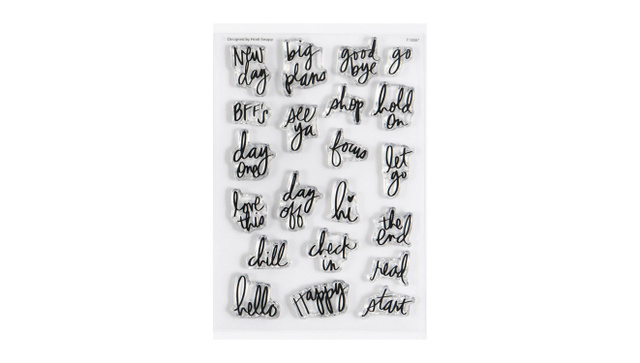 Designed by Heidi Swapp
new
day
big
plans
good
bye
go
BFF's
see
ya
shop
hold
on
day
one
focus
let
go
love
this
day
off
hi
the
end
chill
check
in
read
hello
Happy
start